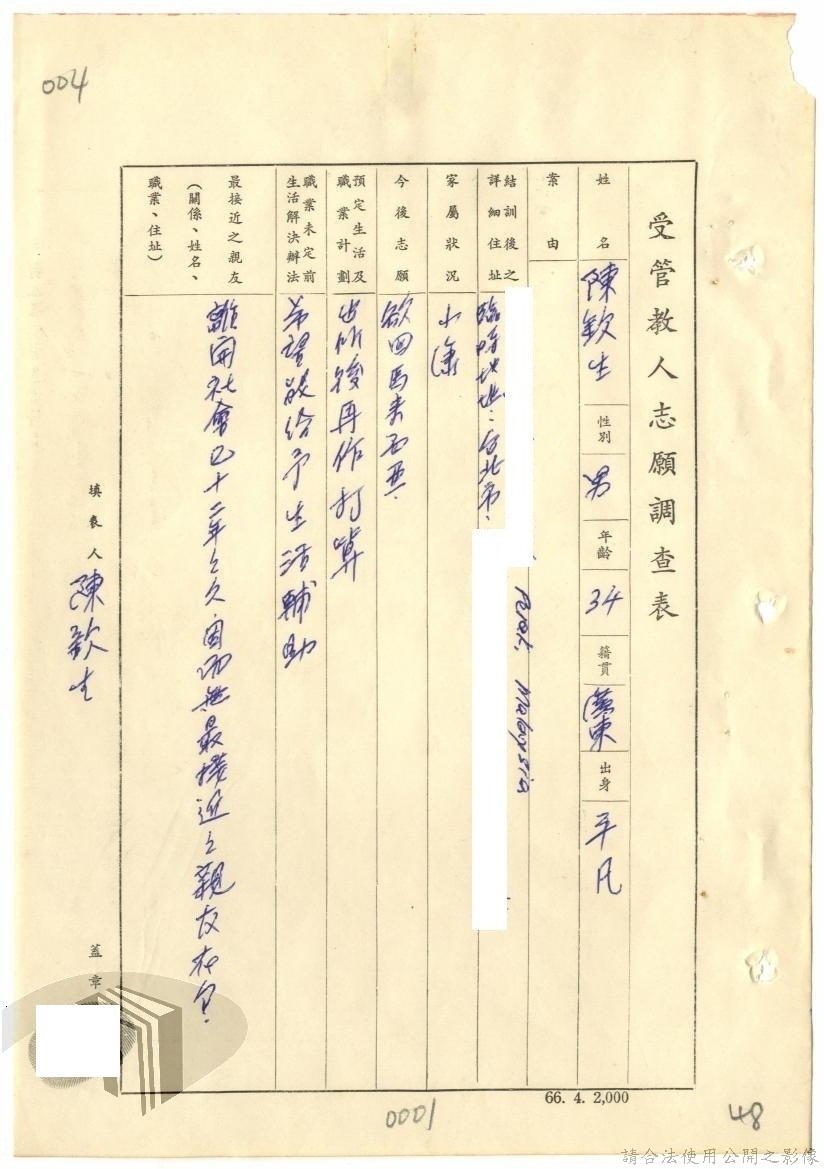 004
受管教人志願調查表
姓名 陳欽生 性別 男 年齡 34 籍貫 廣東 出身 平凡
案由
結訓後之詳細住址 臨時地址：台北市：
Perak, Malaysia
家屬狀況 小康
今後志願 欲回馬來西亞．
預定生活及職業計劃 出所後再作打算
職業未定前生活解決辦法 希望能給予生活輔助
最接近之親友
（關係、姓名、
職業、住址）
離開社會已十二年之久因而無最接近之親友在台．
填表人 陳欽生 蓋章
66. 4. 2,000
0001
48
請合法使用公開之影像